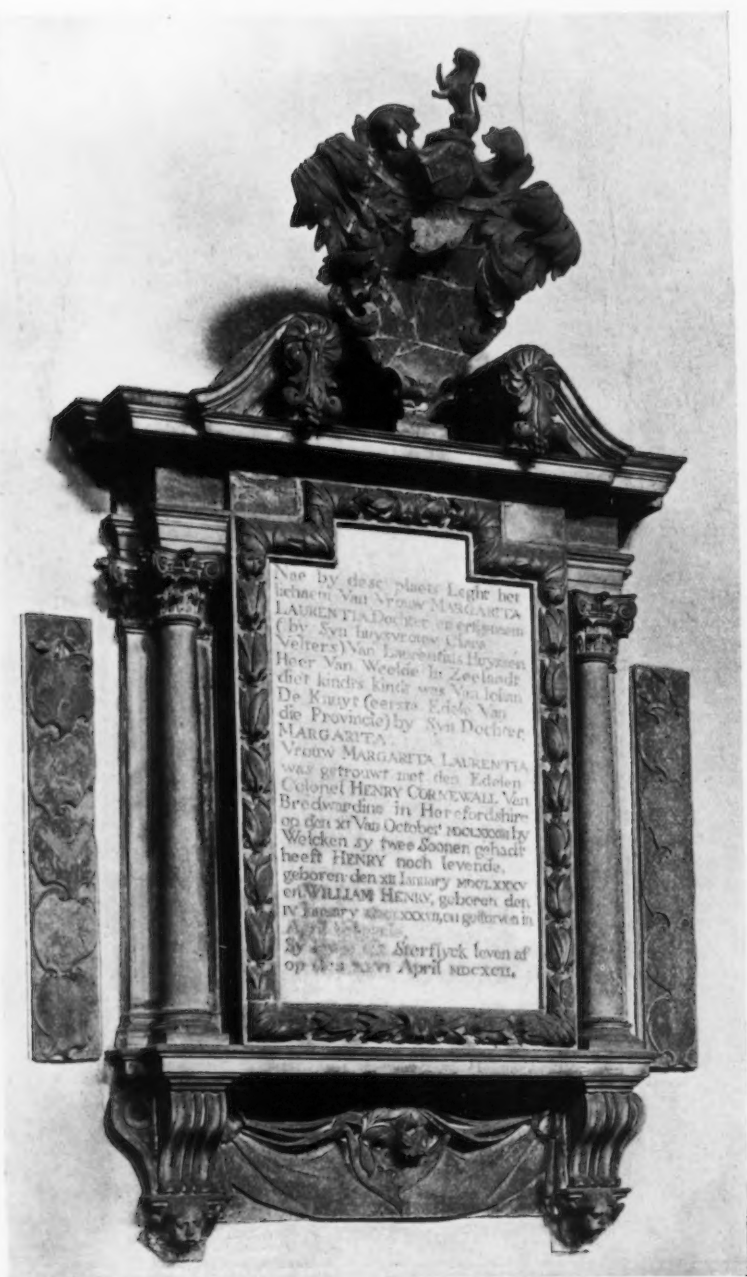 Nae by dese plaets Leght het
lichaem Van Vrouw MARGARITA
LAURENTIA Dochter en erfgenaem
(by Syn huysvrouw Clara
Velters) Van Laurentius Huyssen
Heer Van Weelde In Zeelandt
diet kindts kindt was Van Iohan
De Knuyt (eerste Edele Van
die Provincie) by Syn Dochter
MARGARITA.
Vrouw MARGARITA LAURENTIA
was getrouwt met den Edelen
Colonel HENRY CORNEWALL Van
Bredwardine in Herefordshire
op den XI Van October by
Welcken sy twee Soonen gehadt
heeft HENRY noch levende,
geboren den XII Ianuary MDCLXXXV
en WILLIAM HENRY, geboren den
IV en gestorven in
Sy Sterflyck leven af
op April MDCXCII.